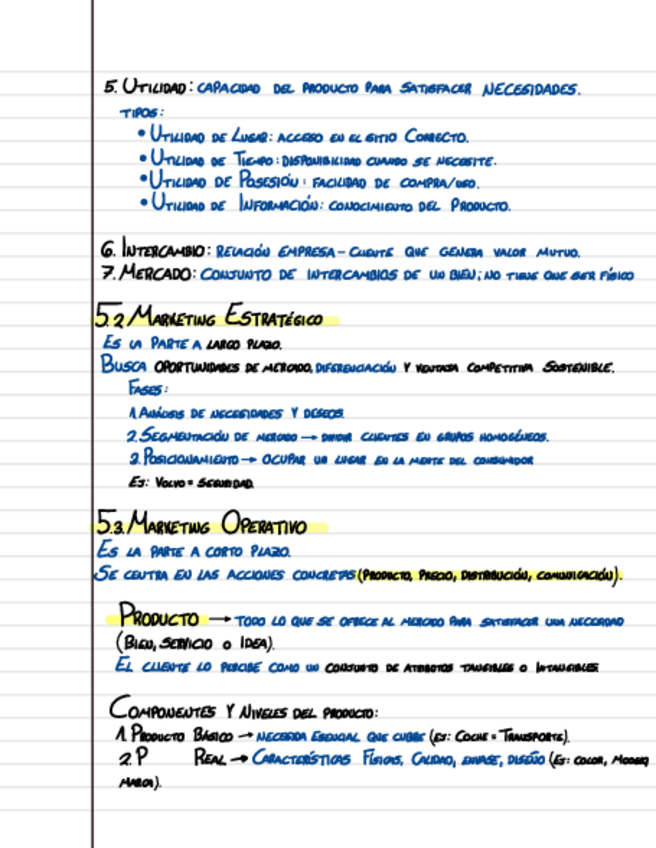 5. Utilidad: capacidad del producto para satisfacer necesidades.
tipos:
• Utilidad de Lugar: acceso en el sitio correcto.
• Utilidad de Tiempo: disponibilidad cuando se necesite.
• Utilidad de Posesión: facilidad de compra/uso.
• Utilidad de Información: conocimiento del producto.
6. Intercambio: relación empresa - cliente que genera valor mutuo.
7. Mercado: conjunto de intercambios de un bien; no tiene que ser físico
5.2 Marketing Estratégico
Es la parte a largo plazo.
Busca oportunidades de mercado, diferenciación y ventaja competitiva sostenible.
Fases:
1. Análisis de necesidades y deseos.
2. Segmentación de mercado → dividir clientes en grupos homogéneos.
3. Posicionamiento → ocupar un lugar en la mente del consumidor
Ej: Volvo = Seguridad.
5.3. Marketing Operativo
Es la parte a corto plazo.
Se centra en las acciones concretas (producto, precio, distribución, comunicación).
Producto → todo lo que se ofrece al mercado para satisfacer una necesidad
(Bien, servicio o idea).
El cliente lo percibe como un conjunto de atributos tangibles o intangibles
Componentes y Niveles del producto:
1. Producto Básico → necesidad esencial que cubre (ej: Coche = Transporte).
2. P Real → Características físicas, calidad, envase, diseño (ej: color, modelo,
marca).